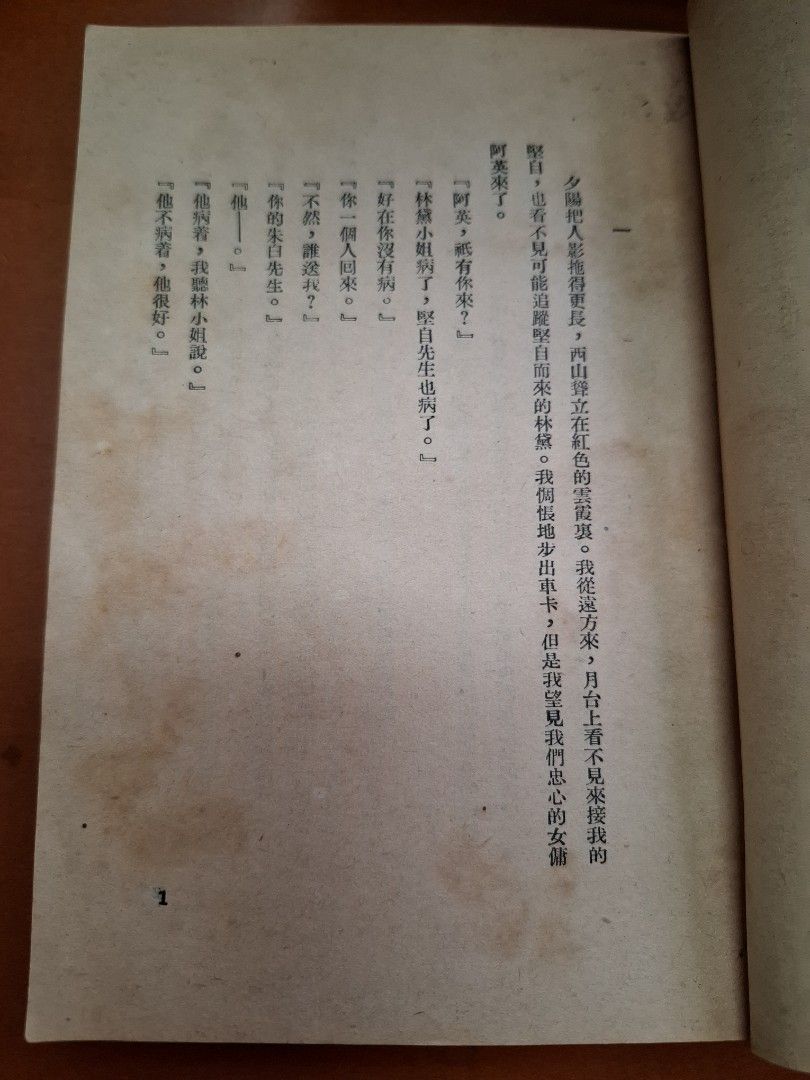 一
夕陽把人影拖得更長，西山聳立在紅色的雲霞裏。我從遠方來，月台上看不見來接我的
堅自，也看不見可能追蹤堅自而來的林黛。我惆悵地步出車卡，但是我望見我們忠心的女傭
阿英來了。
『阿英，祇有你來？』
『林黛小姐病了，堅自先生也病了。』
『好在你沒有病。』
『你一個人回來。』
『不然，誰送我？』
『你的朱白先生。』
『他——。』
『他病着，我聽林小姐說。』
『他不病着，他很好。』
1